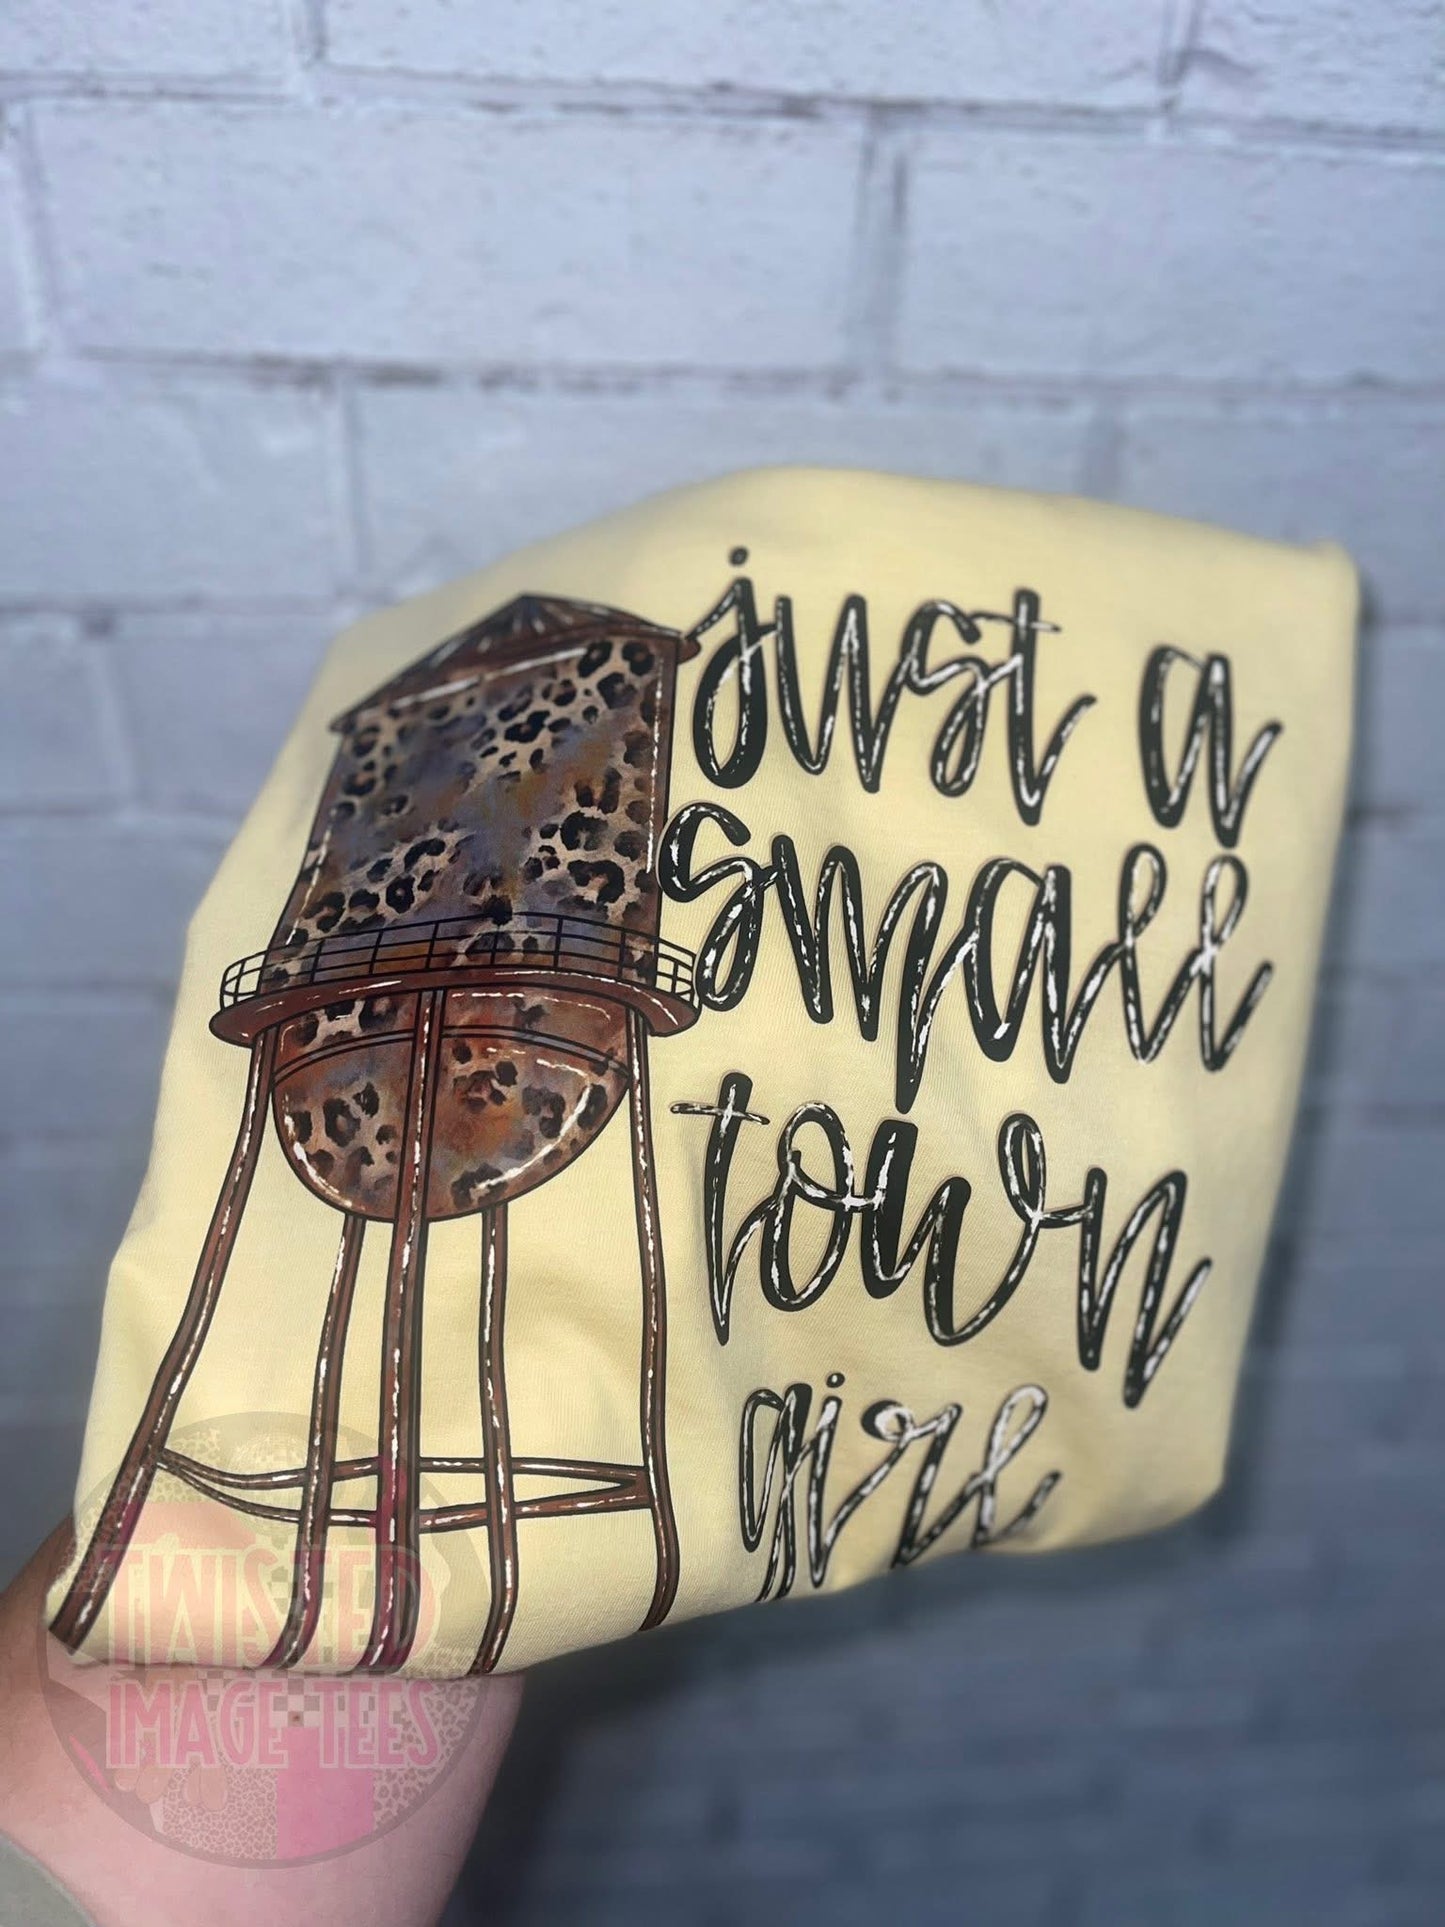 just a
small
town
girl
TWISTED
IMAGE-TEES